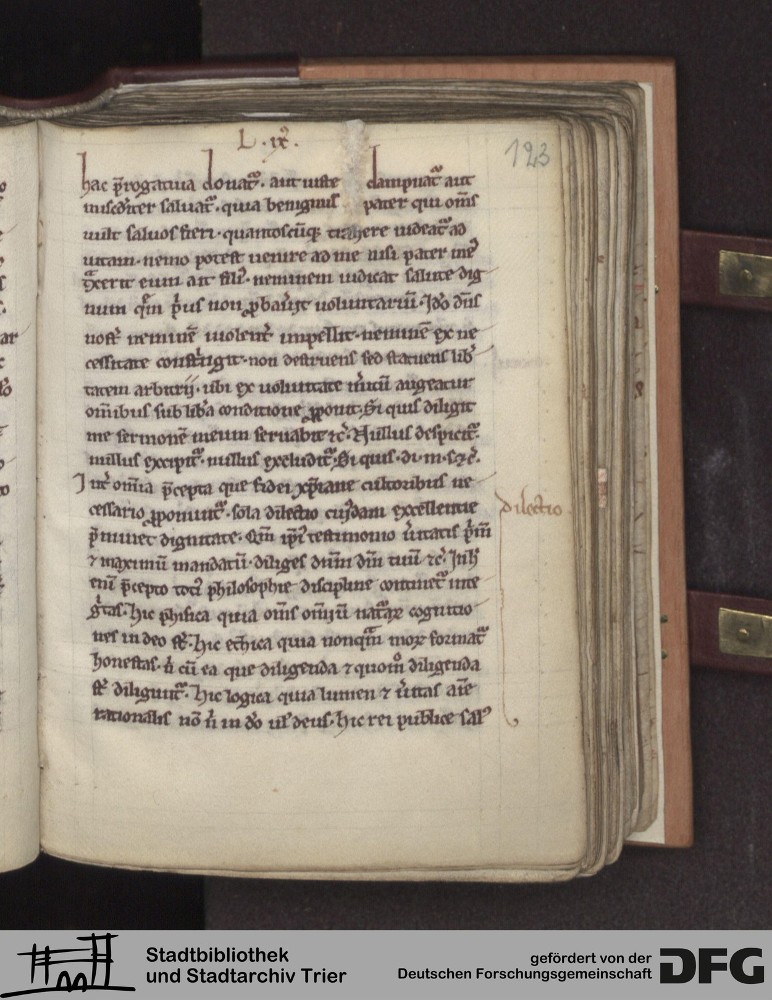 L . ix .
123
hac p̄rogatiua donat᷑. aut iuste dampnat᷑ aut
misẽdit᷑er saluat᷑. quia benignus pater qui om̄s
uult saluos fieri. quantoscūq; trahere uideat᷑ ad
uitam. nemo potest uenire ad me nisi pater me᷒
t͛xerit eum ait fili᷒. neminem iudicat salute dig
num q̄m p̄us non ꝓbauͥit uoluntariū. Ido dn̄s
nost᷑ neminē uiolent᷑ impellit. neminē ex ne
cessitate constͥngit. non destruens sed statuens lib᷑
tatem arbitrij. ubi ex uoluntate m̄itū augeatur
om̄ibus sub lib᷑a conditione ꝓponit. Si quis diligit
me sermonē meum seruabit ⁊c̄. Nullus despicit᷑.
nullus excipit᷑. nullus excludit᷑. Si quis. di. m. s. ⁊c̄.
Int᷑ om̄ia p̄cepta que fidei xp̄iane cultoribus ne
cessario ꝓponunt᷑. sola dilectio cuiꝰdam excellentie
p̄minet dignitate. Q̄m ipꝰi᷒ testimonio u᷑itatis pͥm̄
⁊ maximū mandatū. diliges dn̄m dm̄ tuū ⁊c̄. In h᷒
enī p̄cepto toti᷒ philosophie discipline continet᷑ inte
gͥtas. hic phisica quia om̄s om̄iū naturaꝝ cognitio
nes in deo st᷑. hic ethica quia non q̄m moꝝ format᷑
honestas. n̄ cū ea que diligenda ⁊ quom̊ diligenda
st᷑ diligunt᷑. hic logica quia lumen ⁊ u᷑itas aīe
rationalis nō n̄ in do ul᷑ deus. hic rei publice sal᷒
dilectio
Stadtbibliothek
und Stadtarchiv Trier
gefördert von der
Deutschen Forschungsgemeinschaft
DFG